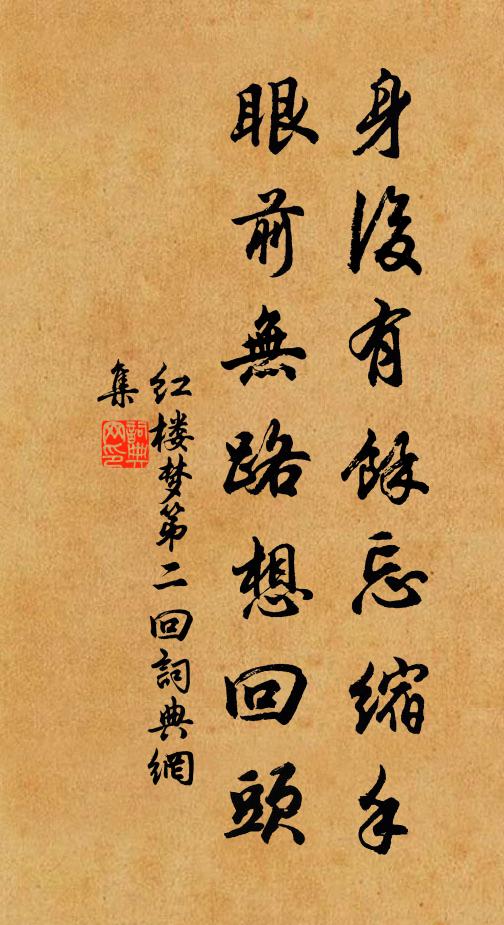 身後有餘忘縮手
眼前無路想回頭
红楼梦第二回詞典網
集
詞典
网印